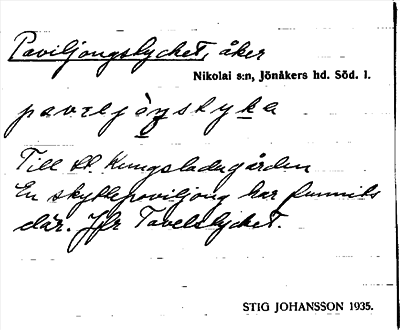 Paviljongslycket, åker
Nikolai s:n, Jönåkers hd. Söd. l.
Till Kungsladugården
En skyttepaviljong har funnits
där. Jfr Tavellycket.
STIG JOHANSSON 1935.